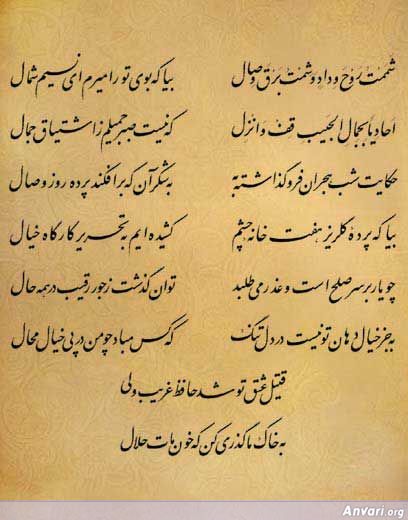 شممت روح وداد و شمت برق وصال بیا که بوی تو را میرم ای نسیم شمال
احادیا بجمال الحبیب قف و انزل که نیست صبر جمیلم ز اشتیاق جمال
حکایت شب هجران فروگذاشته به به شکر آن که برافکند پرده روز وصال
بیا که پرده گلریز هفت خانه چشم کشیده ایم به تحریر کارگاه خیال
چو یار بر سر صلح است و عذر می طلبد توان گذشت ز جور رقیب در همه حال
به جز خیال دهان تو نیست در دل تنگ که کس مباد چو من در پی خیال محال
قتیل عشق تو شد حافظ غریب ولی
به خاک ما گذری کن که خون مات حلال
Anvari.org